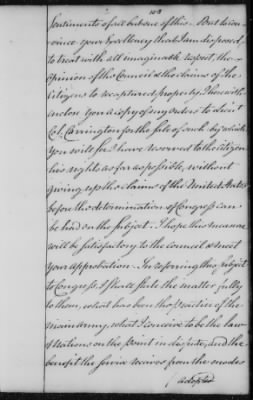 103
Sentiments of as behove of this. But to con-
vince your Excellency that I am disposed
to treat with all imaginable respect, the
opinion of the Council & the claims of the
Citizens to recaptured property I herewith
enclose you a copy of my orders to Lieut
Col. Carrington for the sale of such, by which
you will see I have reserved to the citizen
his rights as far as possible, without
giving up the claims of the United States
before the determination of Congress can
be had on the subject. I hope this measure
will be satisfactory to the council & meet
your approbation. In referring this subject
to Congress, I shall state the matter fully
to them, what has been the practice of the
main army, what I conceive to be the law
of Nations on the point in dispute, and the
benefit the service receives from the modes
adopted